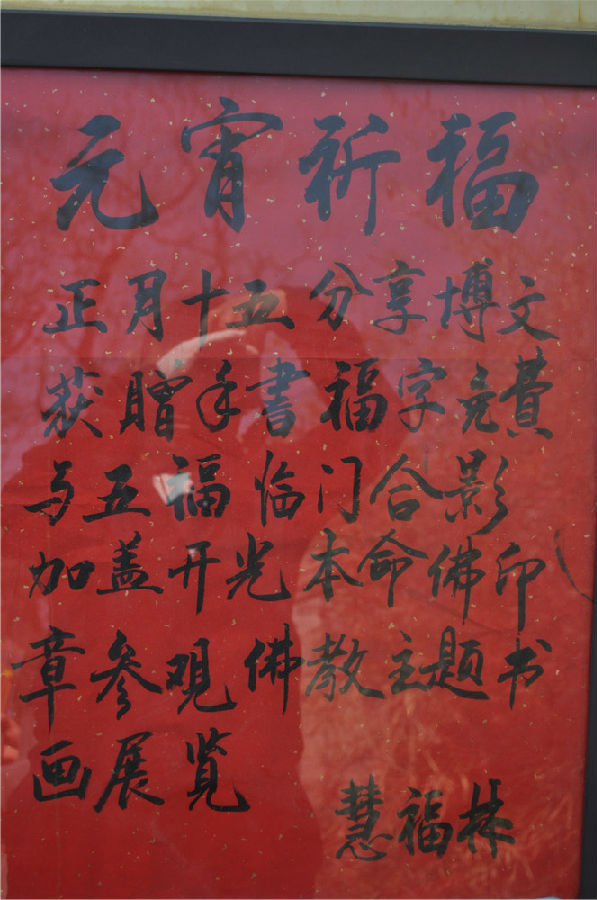 元宵祈福
正月十五分享博文
获赠手書福字免費
与五福临门合影
加盖开光本命佛印
章参观佛教主题书
画展览
慧福林